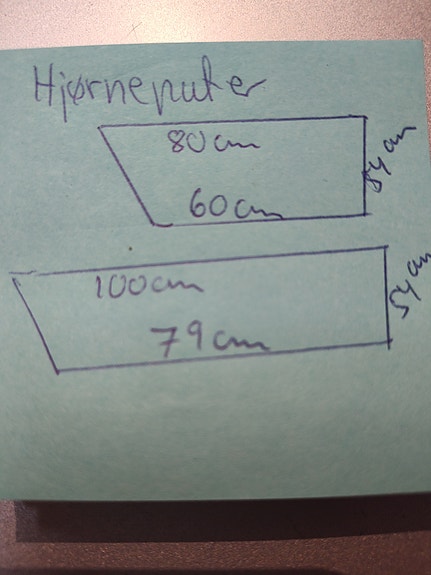 Hjørneputer
80cm
54cm
60cm
100cm
54cm
79cm